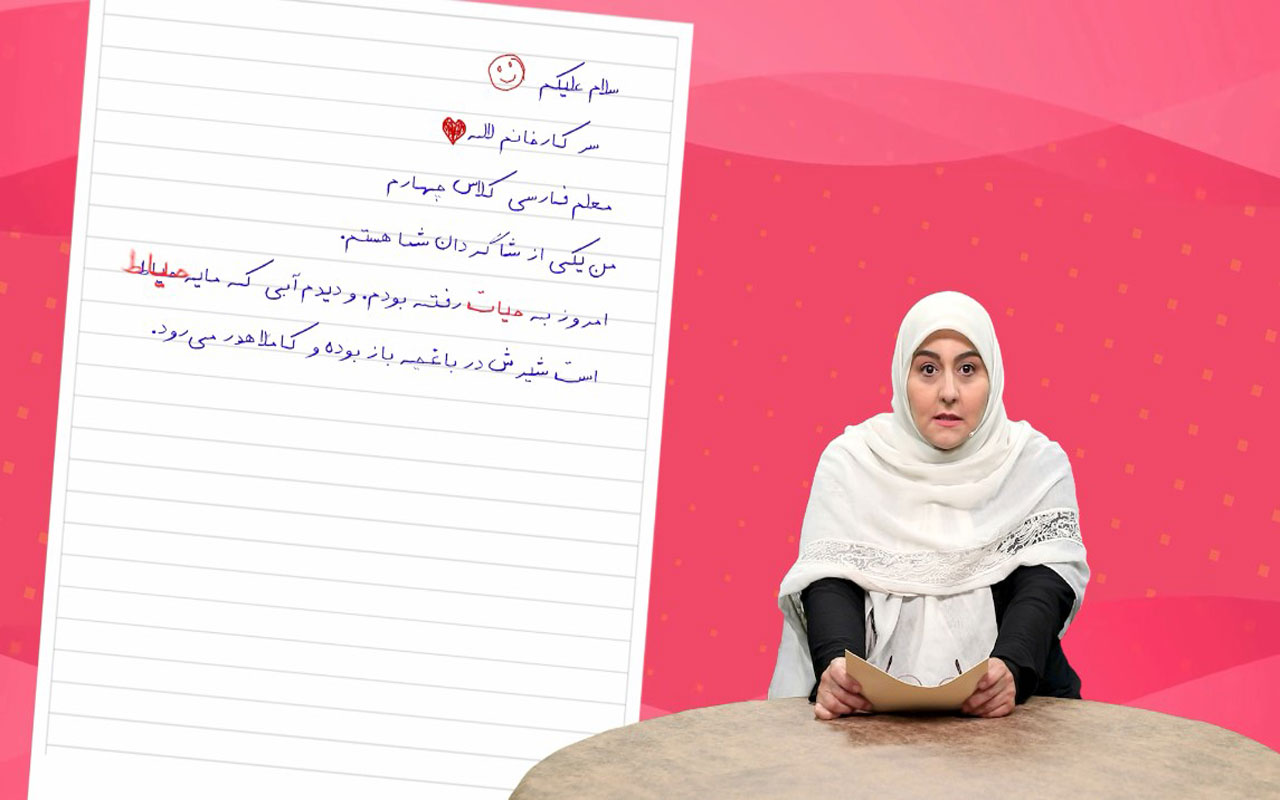 سلام علیکم
سرکار خانم لاله
معلم فارسی کلاس چهارم
من یکی از شاگردان شما هستم.
امروز به حیات رفته بودم. و دیدم آبی که مایه حیاط
است شیرش در باغچه باز بوده و کاملا هدر می‌رود.